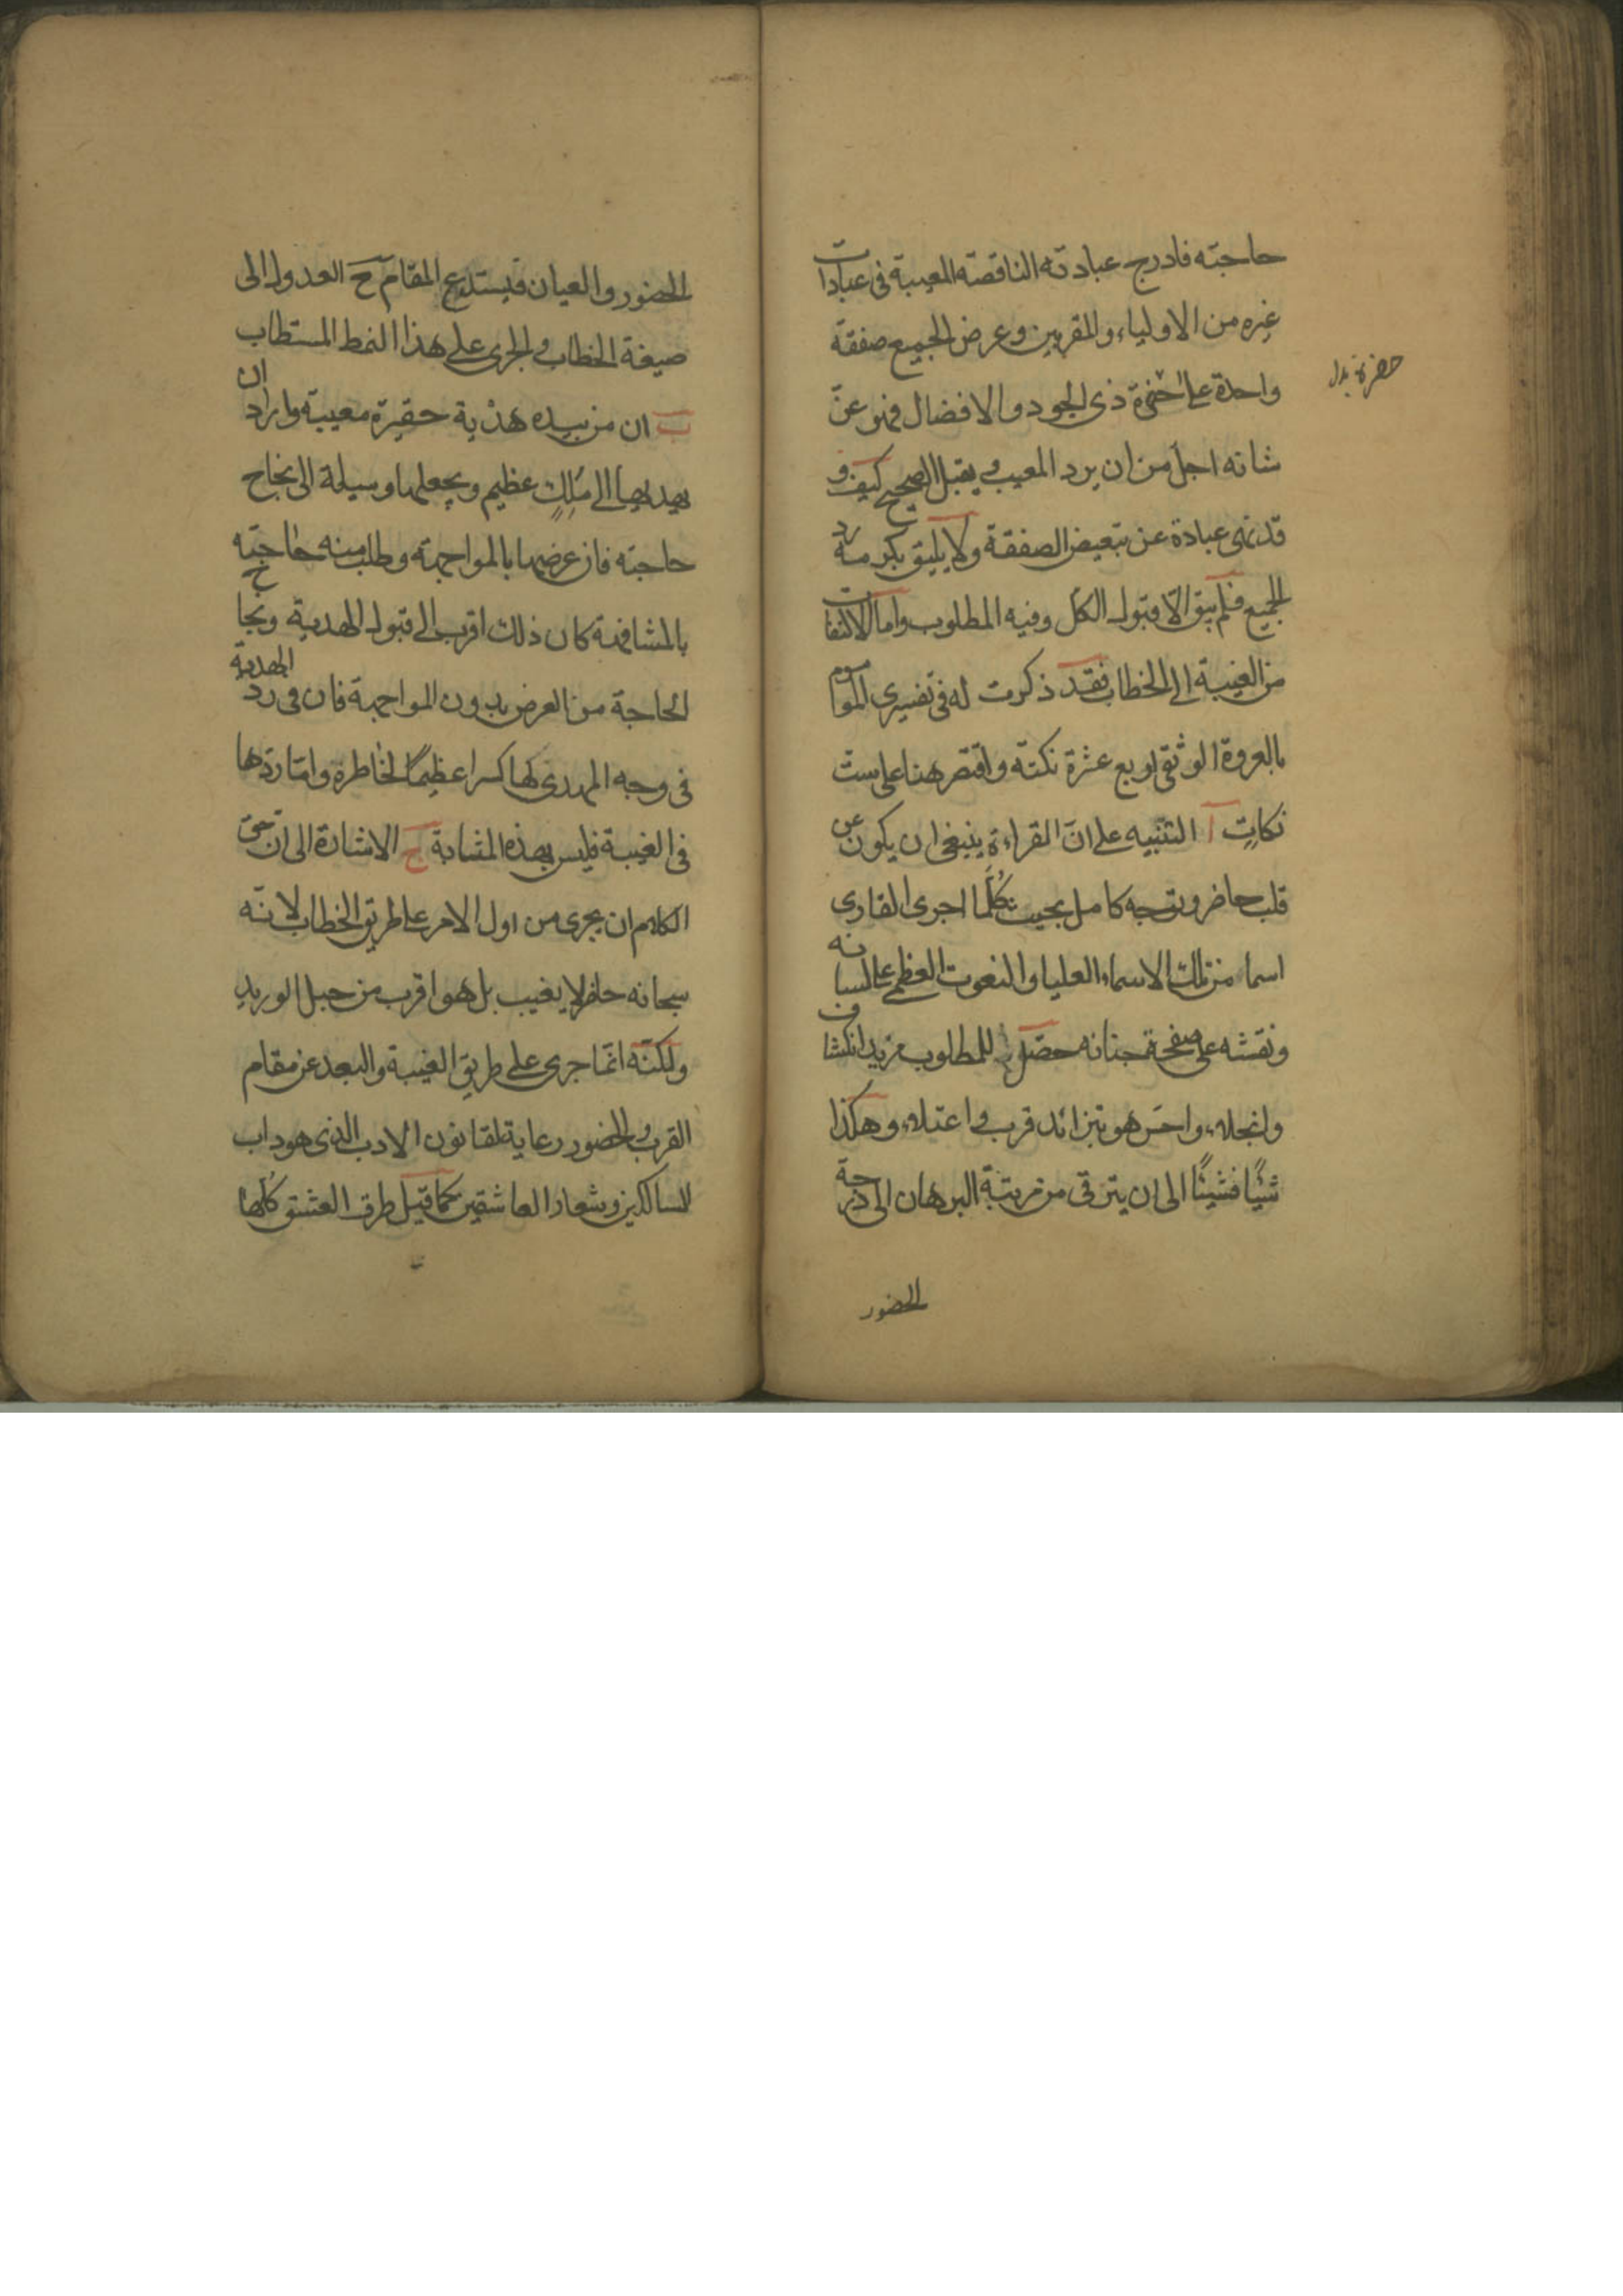 حاجته فادرج عبادته الناقصة المعيبة فى عبادات
غيره من الاولياء والمقربين وعرض الجميع صفقة
واحدة على حضرة ذى الجود والافضال فهو عزّ
حضرة بدل
شانه اجل من ان يرد المعيب ويقبل الصحيح كيف و
قد نهى عباده عن تبعيض الصفقة ولا يليق بكرمه رد
الجميع فلم يبق الّا قبول الكل وفيه المطلوب واما الالتفات
من الغيبة الى الخطاب فقد ذكرت له فى تفسيرى الموسوم
بالعروة الوثقى اربع عشرة نكتة واقتصر هنا على ست
نكاتٍ آ التنبيه على انّ القراءة ينبغى ان يكون عن
قلب حاضر وتوجه كامل بحيث كُلّما اجرى القارى
اسما من تلك الاسماء العليا والنعوت العظمى على لسانه
ونقشه على صفحة جنانه حصل للمطلوب مزيد انكشاف
وانجلاء واحسّ هو بتزائد قرب واعتلاء وهكذا
شيئًا فشيئًا الى ان يترقى من مرتبة البرهان الى درجة
الحضور
الحضور والعيان فيستدعى المقام ح العدول الى
صيغة الخطاب والجرى على هذا النمط المستطاب
ب ان من بيده هدية حقيرة معيبة واراد ان
يهديها الى مَلِكٍ عظيم ويجعلها وسيلة الى نجاح
حاجته فان عرضها بالمواجهة وطلب منه حاجته
بالمشافهة كان ذلك اقرب الى قبول الهدية ونجاح
الحاجة من العرض بدون المواجهة فان فى ردّ الهدية
فى وجه المهدى لها كسرا عظيمًا لخاطره وامّا ردّها
فى الغيبة فليس بهذه المثابة ج الاشارة الى ان حق
الكلام ان يجرى من اول الامر على طريق الخطاب لانّه
سبحانه حاضر لا يغيب بل هو اقرب من حبل الوريد
ولكنّه انّما جرى على طريق الغيبة والبعد عن مقام
القرب والحضور رعاية لقانون الادب الذى هو داب
السالكين وشعار العاشقين كما قيل طرق العشق كُلّها